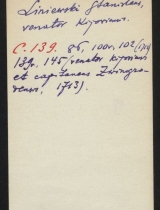 Liniewski Stanislaus,
venator Kijoviensis.
C. 139. 86, 100v, 102
139, 145 (venator kijoviensis
et capitaneus Zwinogro-
densis, 1713).